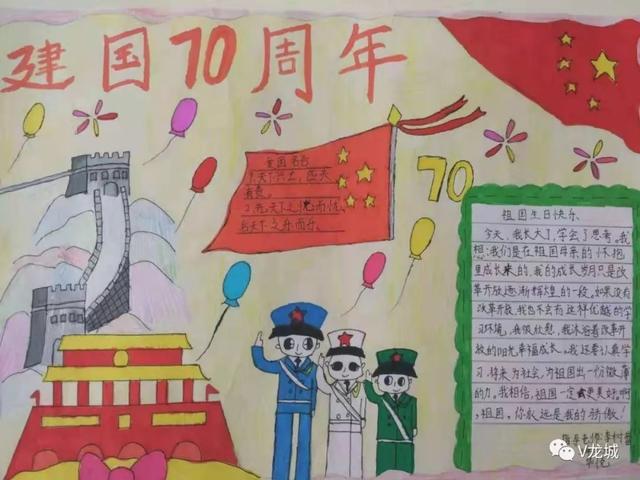 建国70周年
70
爱国名言
1.天下兴亡，匹夫
有责。
2.先天下之忧而忧，
后天下之乐而乐。
祖国生日快乐
今天，我长大了，学会了思考。我
想：我们是在祖国母亲的怀抱
里成长来的，我的成长岁月只是改
革开放逐渐辉煌的一段。如果没有
改革开放，我也不会有这样优越的学
习环境，我很欣慰，我沐浴着改革开
放的阳光幸福成长。我还要认真学
习，将来为社会，为祖国出一份微薄
的力。我相信，祖国一定会更美好。啊
，祖国，你永远是我的骄傲！
指导老师：李树
V龙城